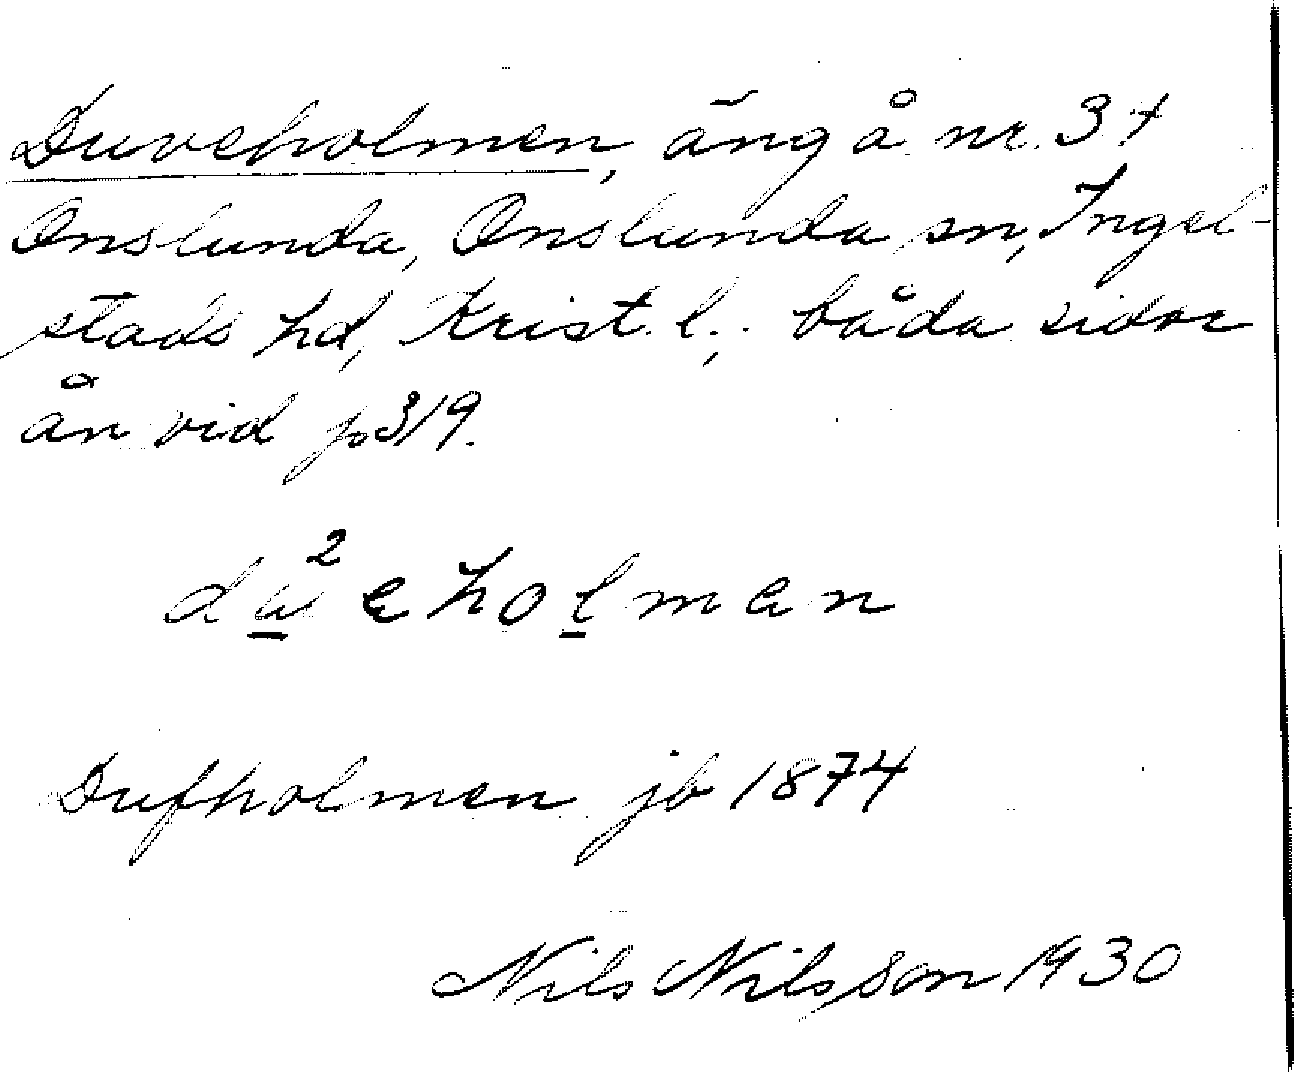 Duveholmen, äng å nr. 3 +
Onslunda, Onslunda sn, Ingel-
stads hd, Krist. l.; båda sidor
ån vid p 319.
du²eholmen
Dufholmen jb 1874
Nils Nilsson 1930